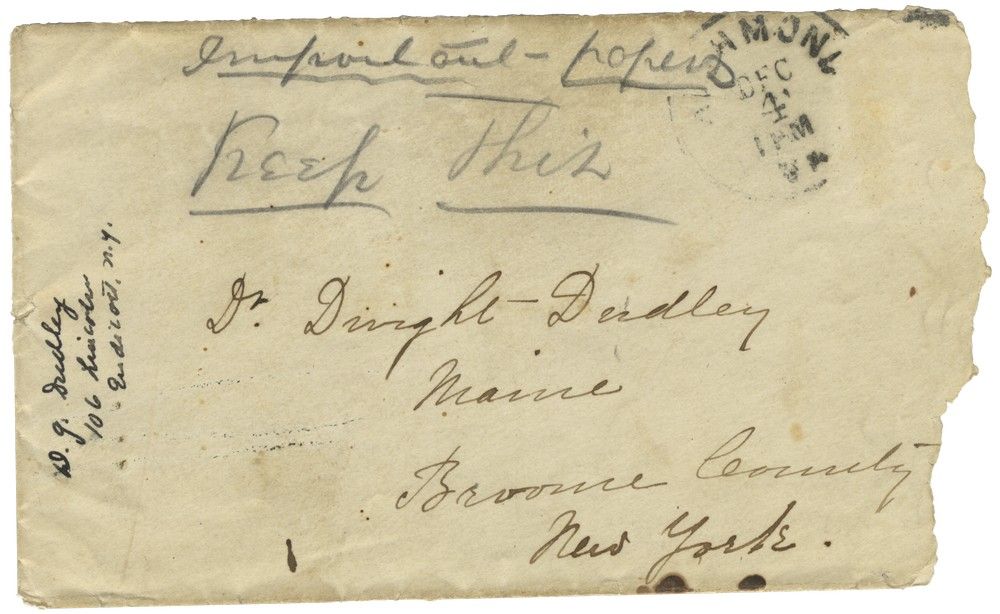 Important- papers
Keep This
RICHMOND
DEC
4
1 PM
VA
Dr. Dwight Dudley
Maine
Broome County
New York.
D. G. Dudley
106 Lincoln
Endicott, N.Y.